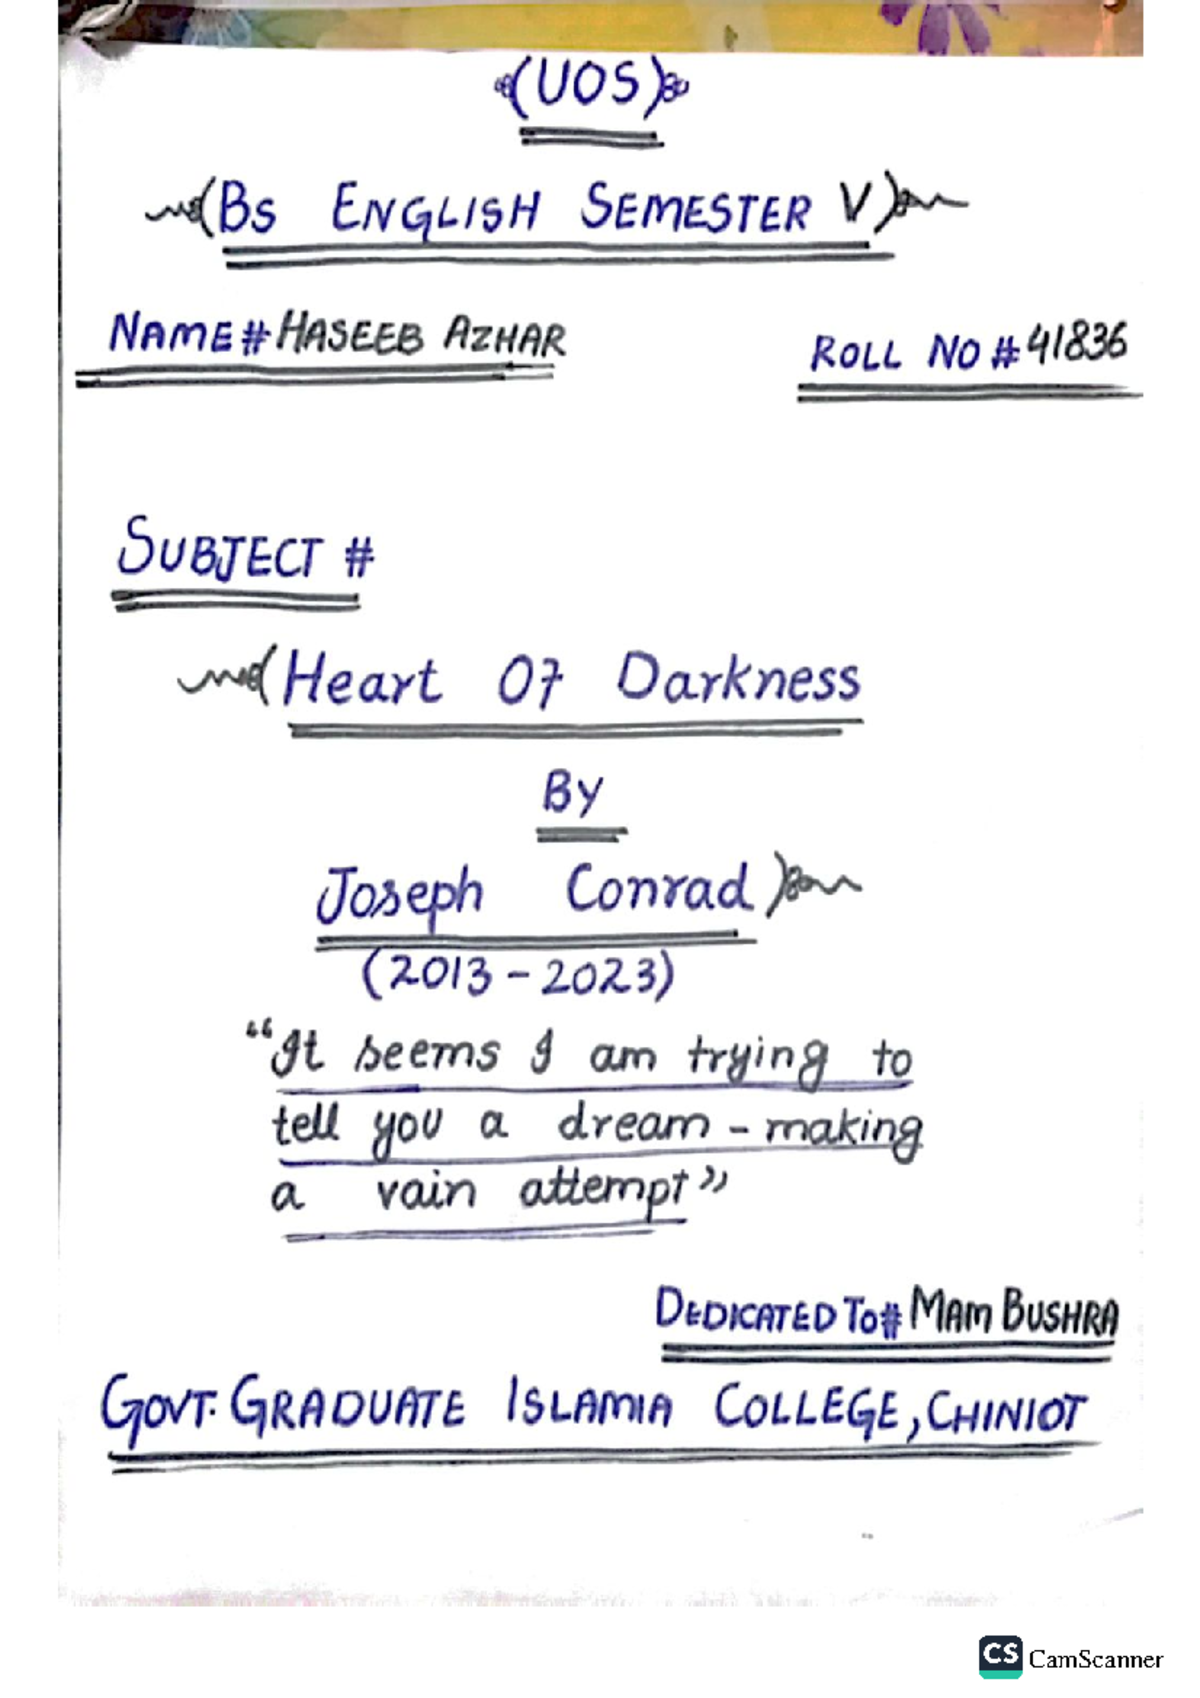 (UOS)
(Bs ENGLISH SEMESTER V)
NAME# HASEEB AZHAR
ROLL NO # 41836
SUBJECT #
(Heart Of Darkness
By
Joseph Conrad)
(2013-2023)
"It seems I am trying to
tell you a dream - making
a vain attempt"
DEDICATED TO# MAM BUSHRA
GOVT. GRADUATE ISLAMIA COLLEGE, CHINIOT
CS CamScanner